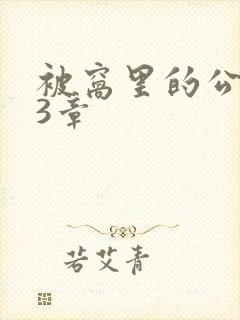 被窝里的公
3章
若艾青